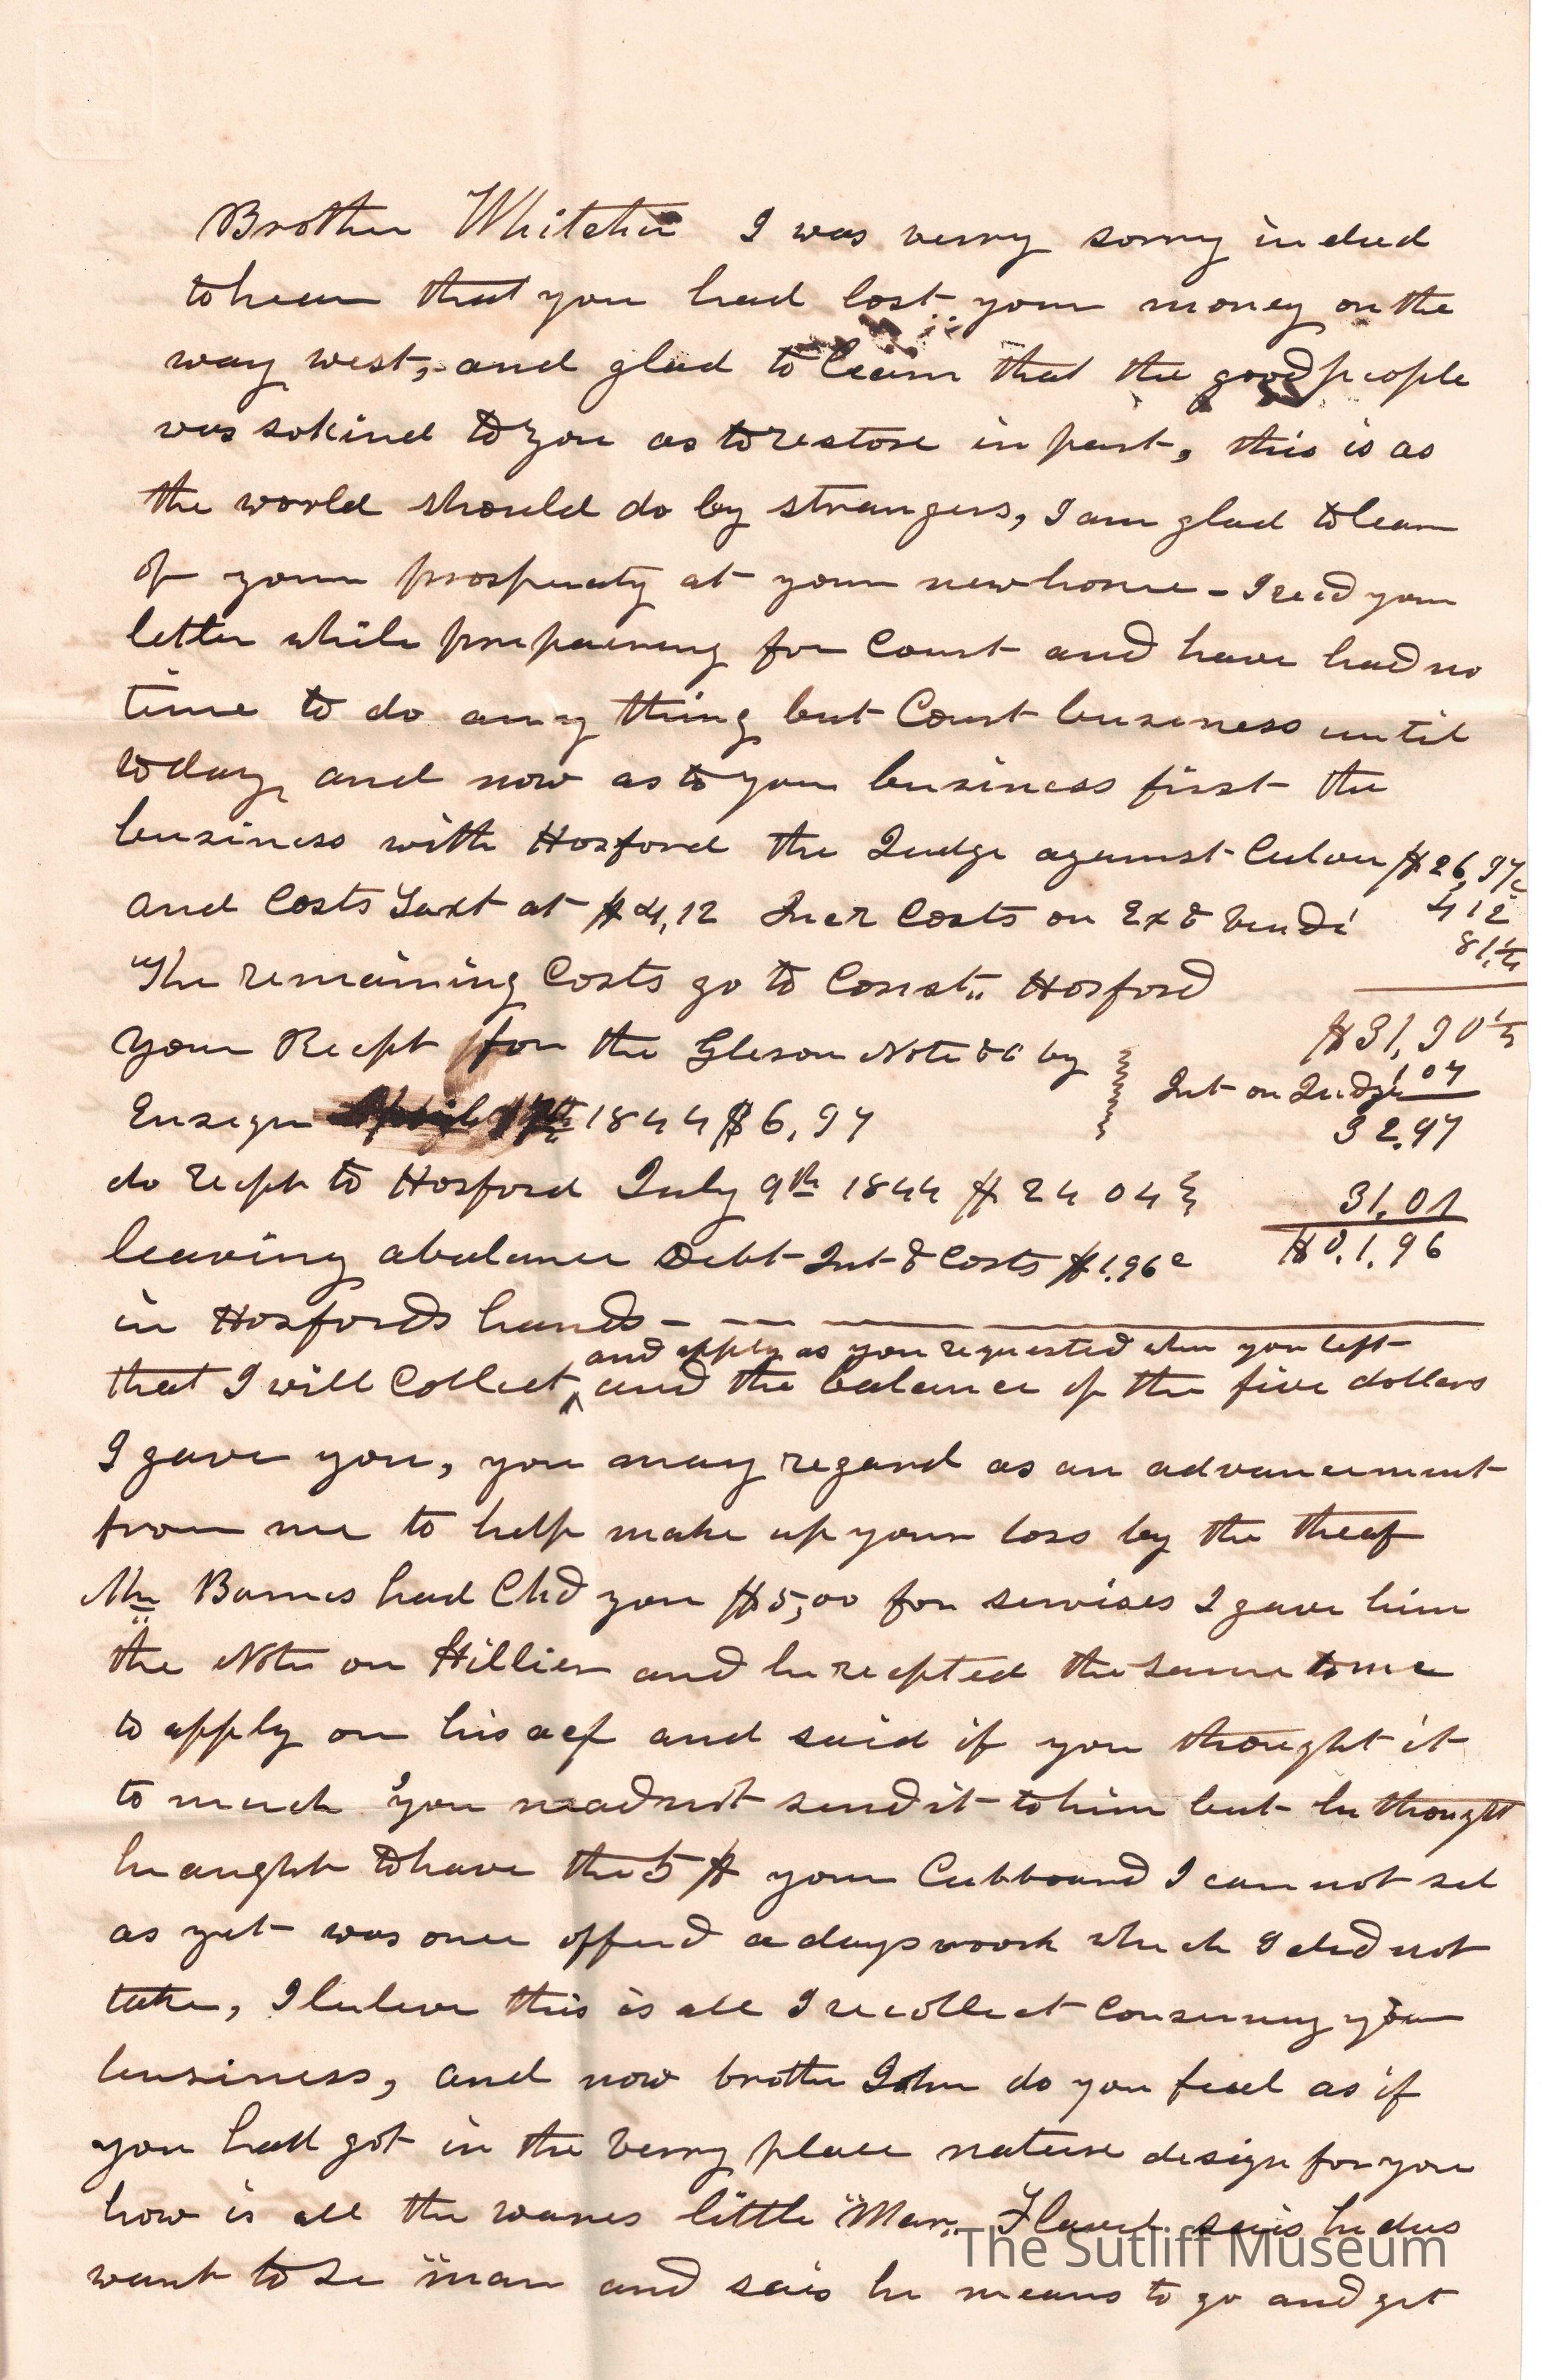 Brother Whitcher I was verry sorry indeed
to hear that you had lost your money on the
way west, and glad to learn that the good people
was so kind to you as to restore in part, this is as
the world should do by strangers, I am glad to learn
of your prosperaty at your new home - I recd your
letter while prepairing for Court and have had no
time to do any thing but Court business until
today, and now as to your business first the
business with Hosford the Judge against Culver $26,97c
and Costs Taxt at $4,12 Incr Costs on Ex & Vendi 4 12
81½
The remaining Costs go to Const.. Hosford
$31,90½
your Recpt for the Gleson Note &c by
Int on Judgt 1 07
Ensign 1844 $6,97
32.97
do recpt to Hosford July 9th 1844 $24 04
31.01
leaving a balance Debt Int & Costs $1.96c $0.1.96
in Hosfords hands
and apply as you requested when you left
that I will Collect, and the balance of the five dollars
I gave you, you may regard as an advancement
from me to help make up your loss by the theaf
Mr Barnes had Chd you $5,00 for servises I gave him
the Note on Hillier and he recpted the same to me
to apply on his act and said if you thought it
to much you neadnot send it to him but he thought
he aught to have the 5$ your Cubboard I can not sel
as yet was once offerd a days work which I did not
take, I beleve this is all I recollect conserning your
business, and now brother John do you feel as if
you had got in the verry place nature design for you
how is all the wanes little "Mar" Flavel seis he dus
want to se "mar and seis he means to go and get
The Sutliff Museum